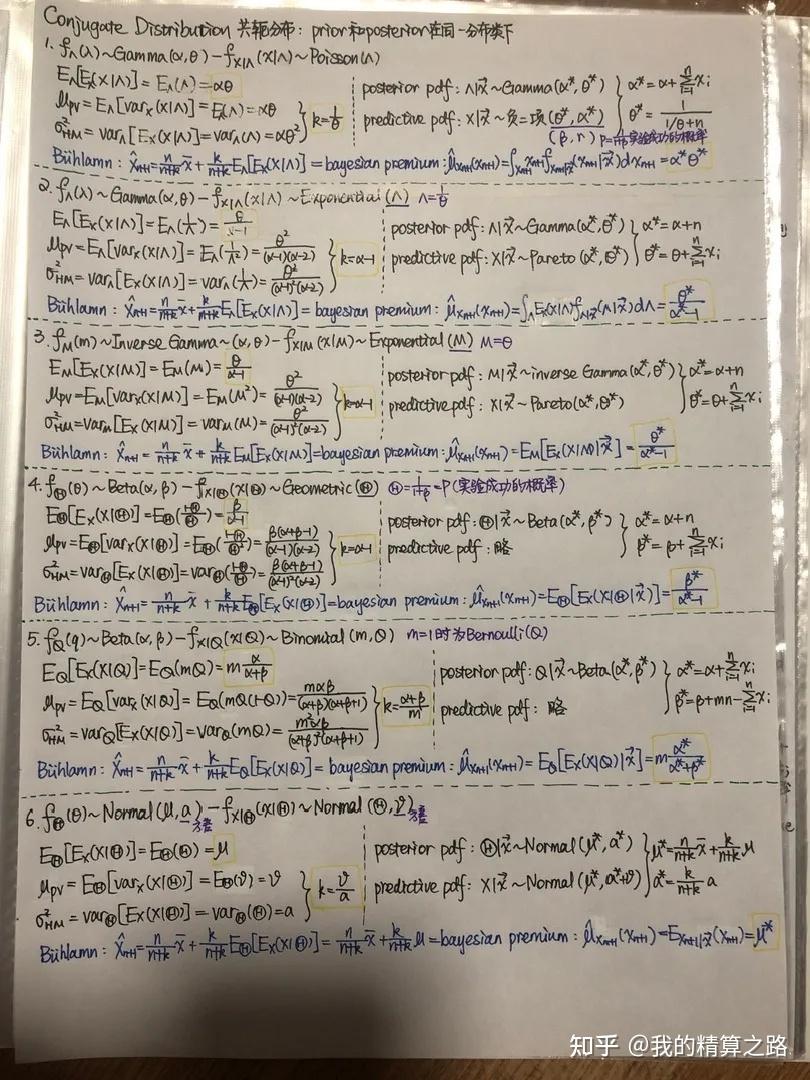 Conjugate Distribution 共轭分布: prior和posterior在同一分布族下
1. f_Λ(λ)~Gamma(α,θ) - f_{X|Λ}(x|Λ)~Poisson(Λ)
E_Λ[E_X(X|Λ)] = E_Λ(Λ) = αθ
μ_PV = E_Λ[var_X(X|Λ)] = E_Λ(Λ) = αθ
σ²_HM = var_Λ[E_X(X|Λ)] = var_Λ(Λ) = αθ²
} k = 1/θ
posterior pdf: Λ|x⃗ ~Gamma(α*, θ*)
predictive pdf: X|x⃗ ~负二项(θ*, α*)
(β, r)
} α* = α + Σ_{i=1}^n x_i
θ* = 1/(1/θ+n)
Bühlamn: X̂_{n+1} = n/(n+k) x̄ + k/(n+k) E_Λ[E_X(X|Λ)] = bayesian premium: μ̂_{X_{n+1}}(x_{n+1}) = ∫_{X_{n+1}} x_{n+1} f_{X_{n+1}|x⃗}(x_{n+1}|x⃗) dx_{n+1} = α*θ*
2. f_Λ(λ) ~ Gamma(α,θ) - f_{X|Λ}(x|Λ) ~ Exponential(Λ) Λ=1/θ
E_Λ[E_X(X|Λ)] = E_Λ(1/Λ) = θ/(α-1)
μ_PV = E_Λ[var_X(X|Λ)] = E_Λ(1/Λ²) = θ²/((α-1)(α-2))
σ²_HM = var_Λ[E_X(X|Λ)] = var_Λ(1/Λ) = θ²/((α-1)²(α-2))
} k=α-1
posterior pdf: Λ|x⃗ ~Gamma(α*, θ*)
predictive pdf: X|x⃗ ~ Pareto(α*, θ*)
} α* = α+n
θ* = θ + Σ_{i=1}^n x_i
Bühlamn: X̂_{n+1} = n/(n+k) x̄ + k/(n+k) E_Λ[E_X(X|Λ)] = bayesian premium: μ̂_{X_{n+1}}(x_{n+1}) = ∫_Λ E_X(X|Λ) f_{Λ|x⃗}(Λ|x⃗) dΛ = θ*/(α*-1)
3. f_M(m) ~ Inverse Gamma~(α,θ) - f_{X|M}(x|M) ~ Exponential(M) M=θ
E_M[E_X(X|M)] = E_M(M) = θ/(α-1)
μ_PV = E_M[var_X(X|M)] = E_M(M²) = θ²/((α-1)(α-2))
σ²_HM = var_M[E_X(X|M)] = var_M(M) = θ²/((α-1)²(α-2))
} k=α-1
posterior pdf: M|x⃗ ~inverse Gamma(α*, θ*)
predictive pdf: X|x⃗ ~ Pareto(α*, θ*)
} α* = α+n
θ* = θ + Σ_{i=1}^n x_i
Bühlamn: X̂_{n+1} = n/(n+k) x̄ + k/(n+k) E_M[E_X(X|M)] = bayesian premium: μ̂_{X_{n+1}}(x_{n+1}) = E_M[E_X(X|M)|x⃗] = θ*/(α*-1)
4. f_Θ(θ) ~ Beta(α,β) - f_{X|Θ}(x|Θ) ~ Geometric(Θ) Θ = 1/(1+β) = P(实验成功的概率)
E_Θ[E_X(X|Θ)] = E_Θ((1-Θ)/Θ) = β/(α-1)
μ_PV = E_Θ[var_X(X|Θ)] = E_Θ((1-Θ)/Θ²) = β(α+β-1)/((α-1)(α-2))
σ²_HM = var_Θ[E_X(X|Θ)] = var_Θ((1-Θ)/Θ) = β(α+β-1)/((α-1)²(α-2))
} k=α-1
posterior pdf: Θ|x⃗ ~Beta(α*, β*)
predictive pdf: 略
} α* = α+n
β* = β + Σ_{i=1}^n x_i
Bühlamn: X̂_{n+1} = n/(n+k) x̄ + k/(n+k) E_Θ[E_X(X|Θ)] = bayesian premium: μ̂_{X_{n+1}}(x_{n+1}) = E_Θ[E_X(X|Θ)|x⃗] = β*/(α*-1)
5. f_Q(q) ~ Beta(α,β) - f_{X|Q}(x|Q) ~ Binomial(m,Q) m=1时为Bernoulli(Q)
E_Q[E_X(X|Q)] = E_Q(mQ) = m α/(α+β)
μ_PV = E_Q[var_X(X|Q)] = E_Q(mQ(1-Q)) = mαβ/((α+β)(α+β+1))
σ²_HM = var_Q[E_X(X|Q)] = var_Q(mQ) = m²αβ/((α+β)²(α+β+1))
} k = (α+β)/m
posterior pdf: Q|x⃗ ~Beta(α*, β*)
predictive pdf: 略
} α* = α + Σ_{i=1}^n x_i
β* = β + mn - Σ_{i=1}^n x_i
Bühlamn: X̂_{n+1} = n/(n+k) x̄ + k/(n+k) E_Q[E_X(X|Q)] = bayesian premium: μ̂_{X_{n+1}}(x_{n+1}) = E_Q[E_X(X|Q)|x⃗] = m α*/(α*+β*)
6. f_Θ(θ) ~ Normal(μ,a) - f_{X|Θ}(x|Θ) ~ Normal(Θ,ϑ)
方差 方差
E_Θ[E_X(X|Θ)] = E_Θ(Θ) = μ
μ_PV = E_Θ[var_X(X|Θ)] = E_Θ(ϑ) = ϑ
σ²_HM = var_Θ[E_X(X|Θ)] = var_Θ(Θ) = a
} k = ϑ/a
posterior pdf: Θ|x⃗ ~Normal(μ*, a*)
predictive pdf: X|x⃗ ~Normal(μ*, a*+ϑ)
} μ* = n/(n+k) x̄ + k/(n+k) μ
a* = k/(n+k) a
Bühlamn: X̂_{n+1} = n/(n+k) x̄ + k/(n+k) E_Θ[E_X(X|Θ)] = n/(n+k) x̄ + k/(n+k) μ = bayesian premium: μ̂_{X_{n+1}}(x_{n+1}) = E_{X_{n+1}|x⃗}(x_{n+1}) = μ*
知乎 @我的精算之路